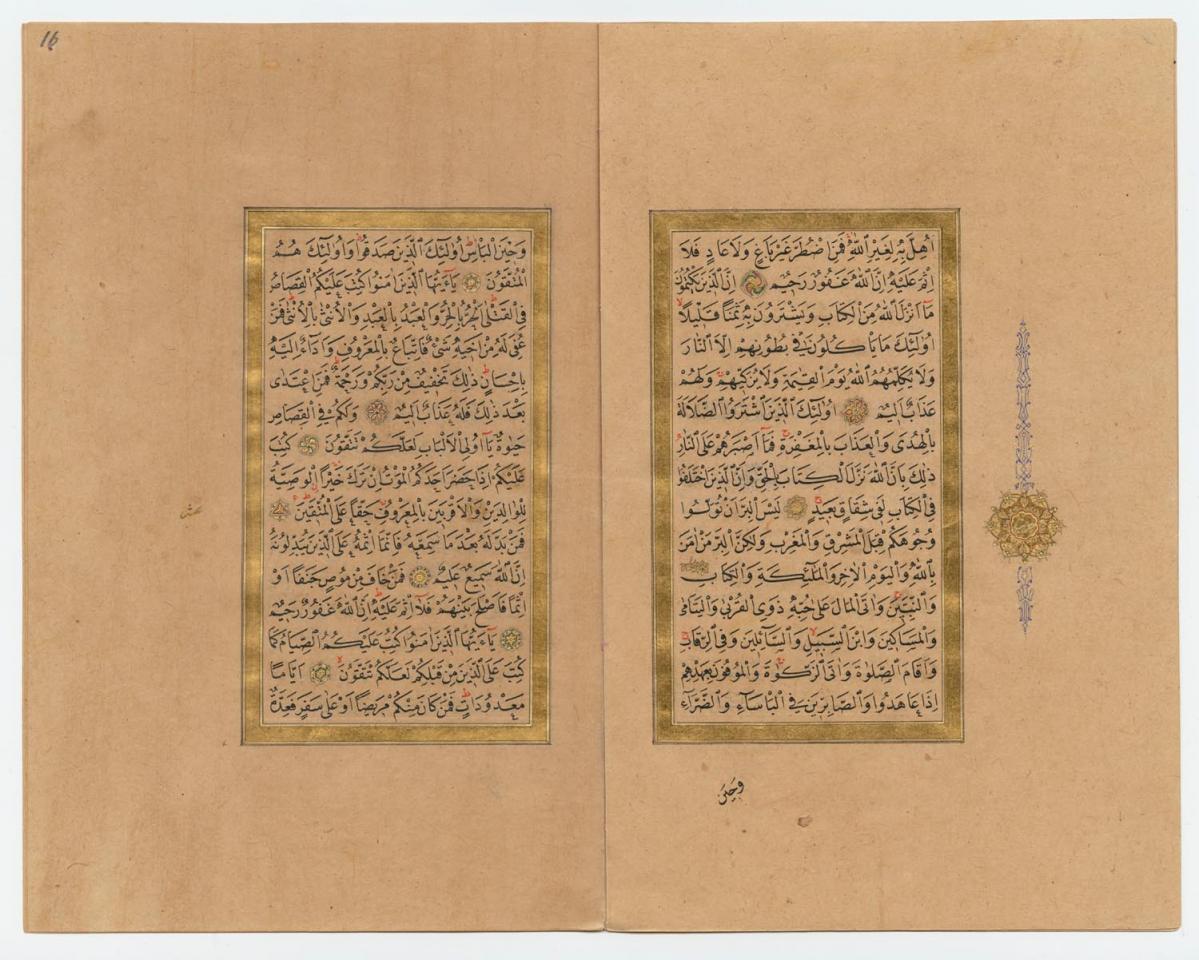 اُهِلَّ بِهِ لِغَيْرِ اللّٰهِ فَمَنِ اضْطُرَّ غَيْرَ بَاغٍ وَلَا عَادٍ فَلَا
اِثْمَ عَلَيْهِ اِنَّ اللّٰهَ غَفُورٌ رَحِيمٌ اِنَّ الَّذِينَ يَكْتُمُونَ
مَا اَنْزَلَ اللّٰهُ مِنَ الْكِتَابِ وَيَشْتَرُونَ بِهِ ثَمَنًا قَلِيلًا
اُولٰئِكَ مَا يَأْكُلُونَ فِي بُطُونِهِمْ اِلَّا النَّارَ
وَلَا يُكَلِّمُهُمُ اللّٰهُ يَوْمَ الْقِيٰمَةِ وَلَا يُزَكِّيهِمْ وَلَهُمْ
عَذَابٌ اَلِيمٌ اُولٰئِكَ الَّذِينَ اشْتَرَوُا الضَّلَالَةَ
بِالْهُدَى وَالْعَذَابَ بِالْمَغْفِرَةِ فَمَا اَصْبَرَهُمْ عَلَى النَّارِ
ذٰلِكَ بِاَنَّ اللّٰهَ نَزَّلَ الْكِتَابَ بِالْحَقِّ وَاِنَّ الَّذِينَ اخْتَلَفُوا
فِي الْكِتَابِ لَفِي شِقَاقٍ بَعِيدٍ لَيْسَ الْبِرَّ اَنْ تُوَلُّوا
وُجُوهَكُمْ قِبَلَ الْمَشْرِقِ وَالْمَغْرِبِ وَلٰكِنَّ الْبِرَّ مَنْ اٰمَنَ
بِاللّٰهِ وَالْيَوْمِ الْاٰخِرِ وَالْمَلٰئِكَةِ وَالْكِتَابِ
وَالنَّبِيِّينَ وَاٰتَى الْمَالَ عَلَى حُبِّهِ ذَوِي الْقُرْبَى وَالْيَتَامَى
وَالْمَسَاكِينَ وَابْنَ السَّبِيلِ وَالسَّائِلِينَ وَفِي الرِّقَابِ
وَاَقَامَ الصَّلٰوةَ وَاٰتَى الزَّكٰوةَ وَالْمُوفُونَ بِعَهْدِهِمْ
اِذَا عَاهَدُوا وَالصَّابِرِينَ فِي الْبَأْسَاءِ وَالضَّرَّاءِ
وَحِينَ
16
وَحِينَ الْبَأْسِ اُولٰئِكَ الَّذِينَ صَدَقُوا وَاُولٰئِكَ هُمُ
الْمُتَّقُونَ يَا اَيُّهَا الَّذِينَ اٰمَنُوا كُتِبَ عَلَيْكُمُ الْقِصَاصُ
فِي الْقَتْلٰى اَلْحُرُّ بِالْحُرِّ وَالْعَبْدُ بِالْعَبْدِ وَالْاُنْثٰى بِالْاُنْثٰى فَمَنْ
عُفِيَ لَهُ مِنْ اَخِيهِ شَيْءٌ فَاتِّبَاعٌ بِالْمَعْرُوفِ وَاَدَاءٌ اِلَيْهِ
بِاِحْسَانٍ ذٰلِكَ تَخْفِيفٌ مِنْ رَبِّكُمْ وَرَحْمَةٌ فَمَنِ اعْتَدٰى
بَعْدَ ذٰلِكَ فَلَهُ عَذَابٌ اَلِيمٌ وَلَكُمْ فِي الْقِصَاصِ
حَيٰوةٌ يَا اُولِي الْاَلْبَابِ لَعَلَّكُمْ تَتَّقُونَ كُتِبَ
عَلَيْكُمْ اِذَا حَضَرَ اَحَدَكُمُ الْمَوْتُ اِنْ تَرَكَ خَيْرًا الْوَصِيَّةُ
لِلْوَالِدَيْنِ وَالْاَقْرَبِينَ بِالْمَعْرُوفِ حَقًّا عَلَى الْمُتَّقِينَ
فَمَنْ بَدَّلَهُ بَعْدَ مَا سَمِعَهُ فَاِنَّمَا اِثْمُهُ عَلَى الَّذِينَ يُبَدِّلُونَهُ
اِنَّ اللّٰهَ سَمِيعٌ عَلِيمٌ فَمَنْ خَافَ مِنْ مُوصٍ جَنَفًا اَوْ
اِثْمًا فَاَصْلَحَ بَيْنَهُمْ فَلَا اِثْمَ عَلَيْهِ اِنَّ اللّٰهَ غَفُورٌ رَحِيمٌ
يَا اَيُّهَا الَّذِينَ اٰمَنُوا كُتِبَ عَلَيْكُمُ الصِّيَامُ كَمَا
كُتِبَ عَلَى الَّذِينَ مِنْ قَبْلِكُمْ لَعَلَّكُمْ تَتَّقُونَ اَيَّامًا
مَعْدُودَاتٍ فَمَنْ كَانَ مِنْكُمْ مَرِيضًا اَوْ عَلَى سَفَرٍ فَعِدَّةٌ